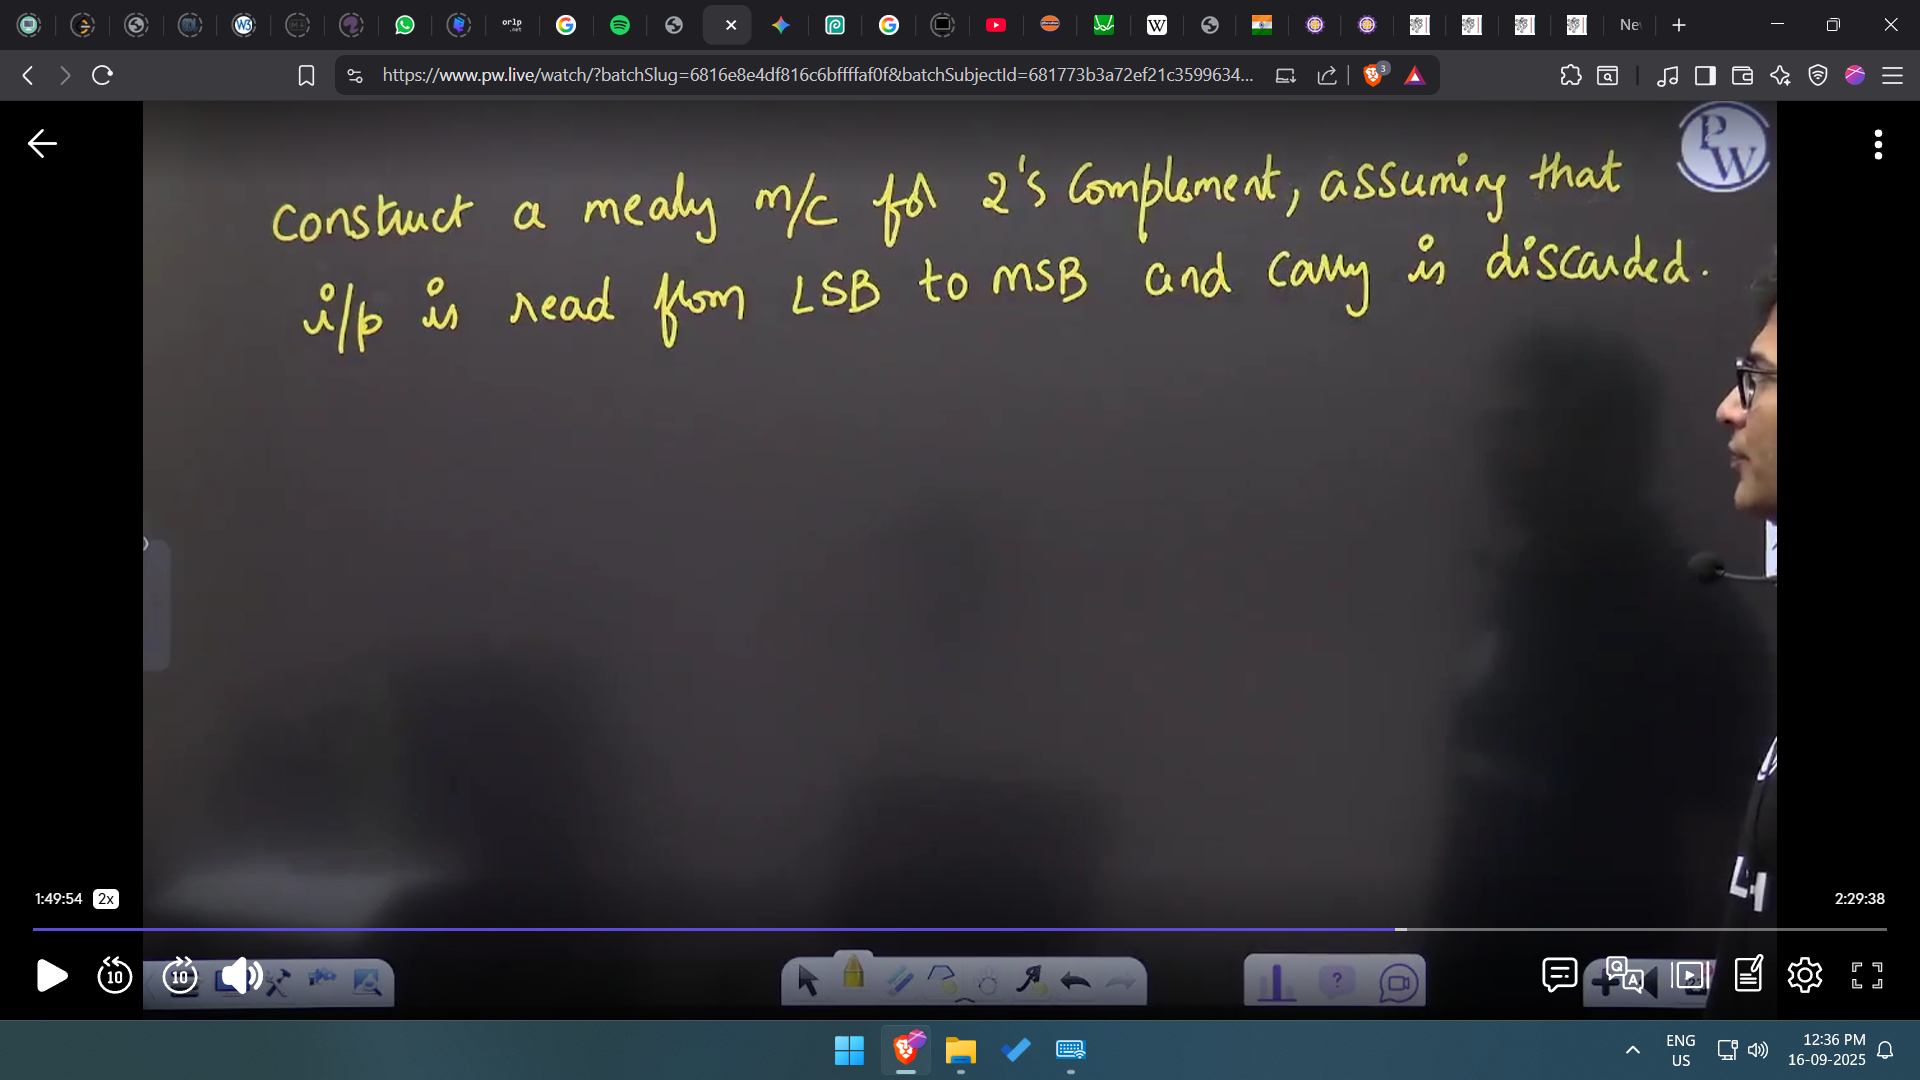 W3
orlp
.net
W
Ne
https://www.pw.live/watch/?batchSlug=6816e8e4df816c6bffffaf0f&batchSubjectId=681773b3a72ef21c3599634...
3
PW
Construct a mealy m/c for 2's Complement, assuming that
i/p is read from LSB to MSB and carry is discarded.
1:49:54 2x
2:29:38
10 10
Q A
ENG
US
12:36 PM
16-09-2025